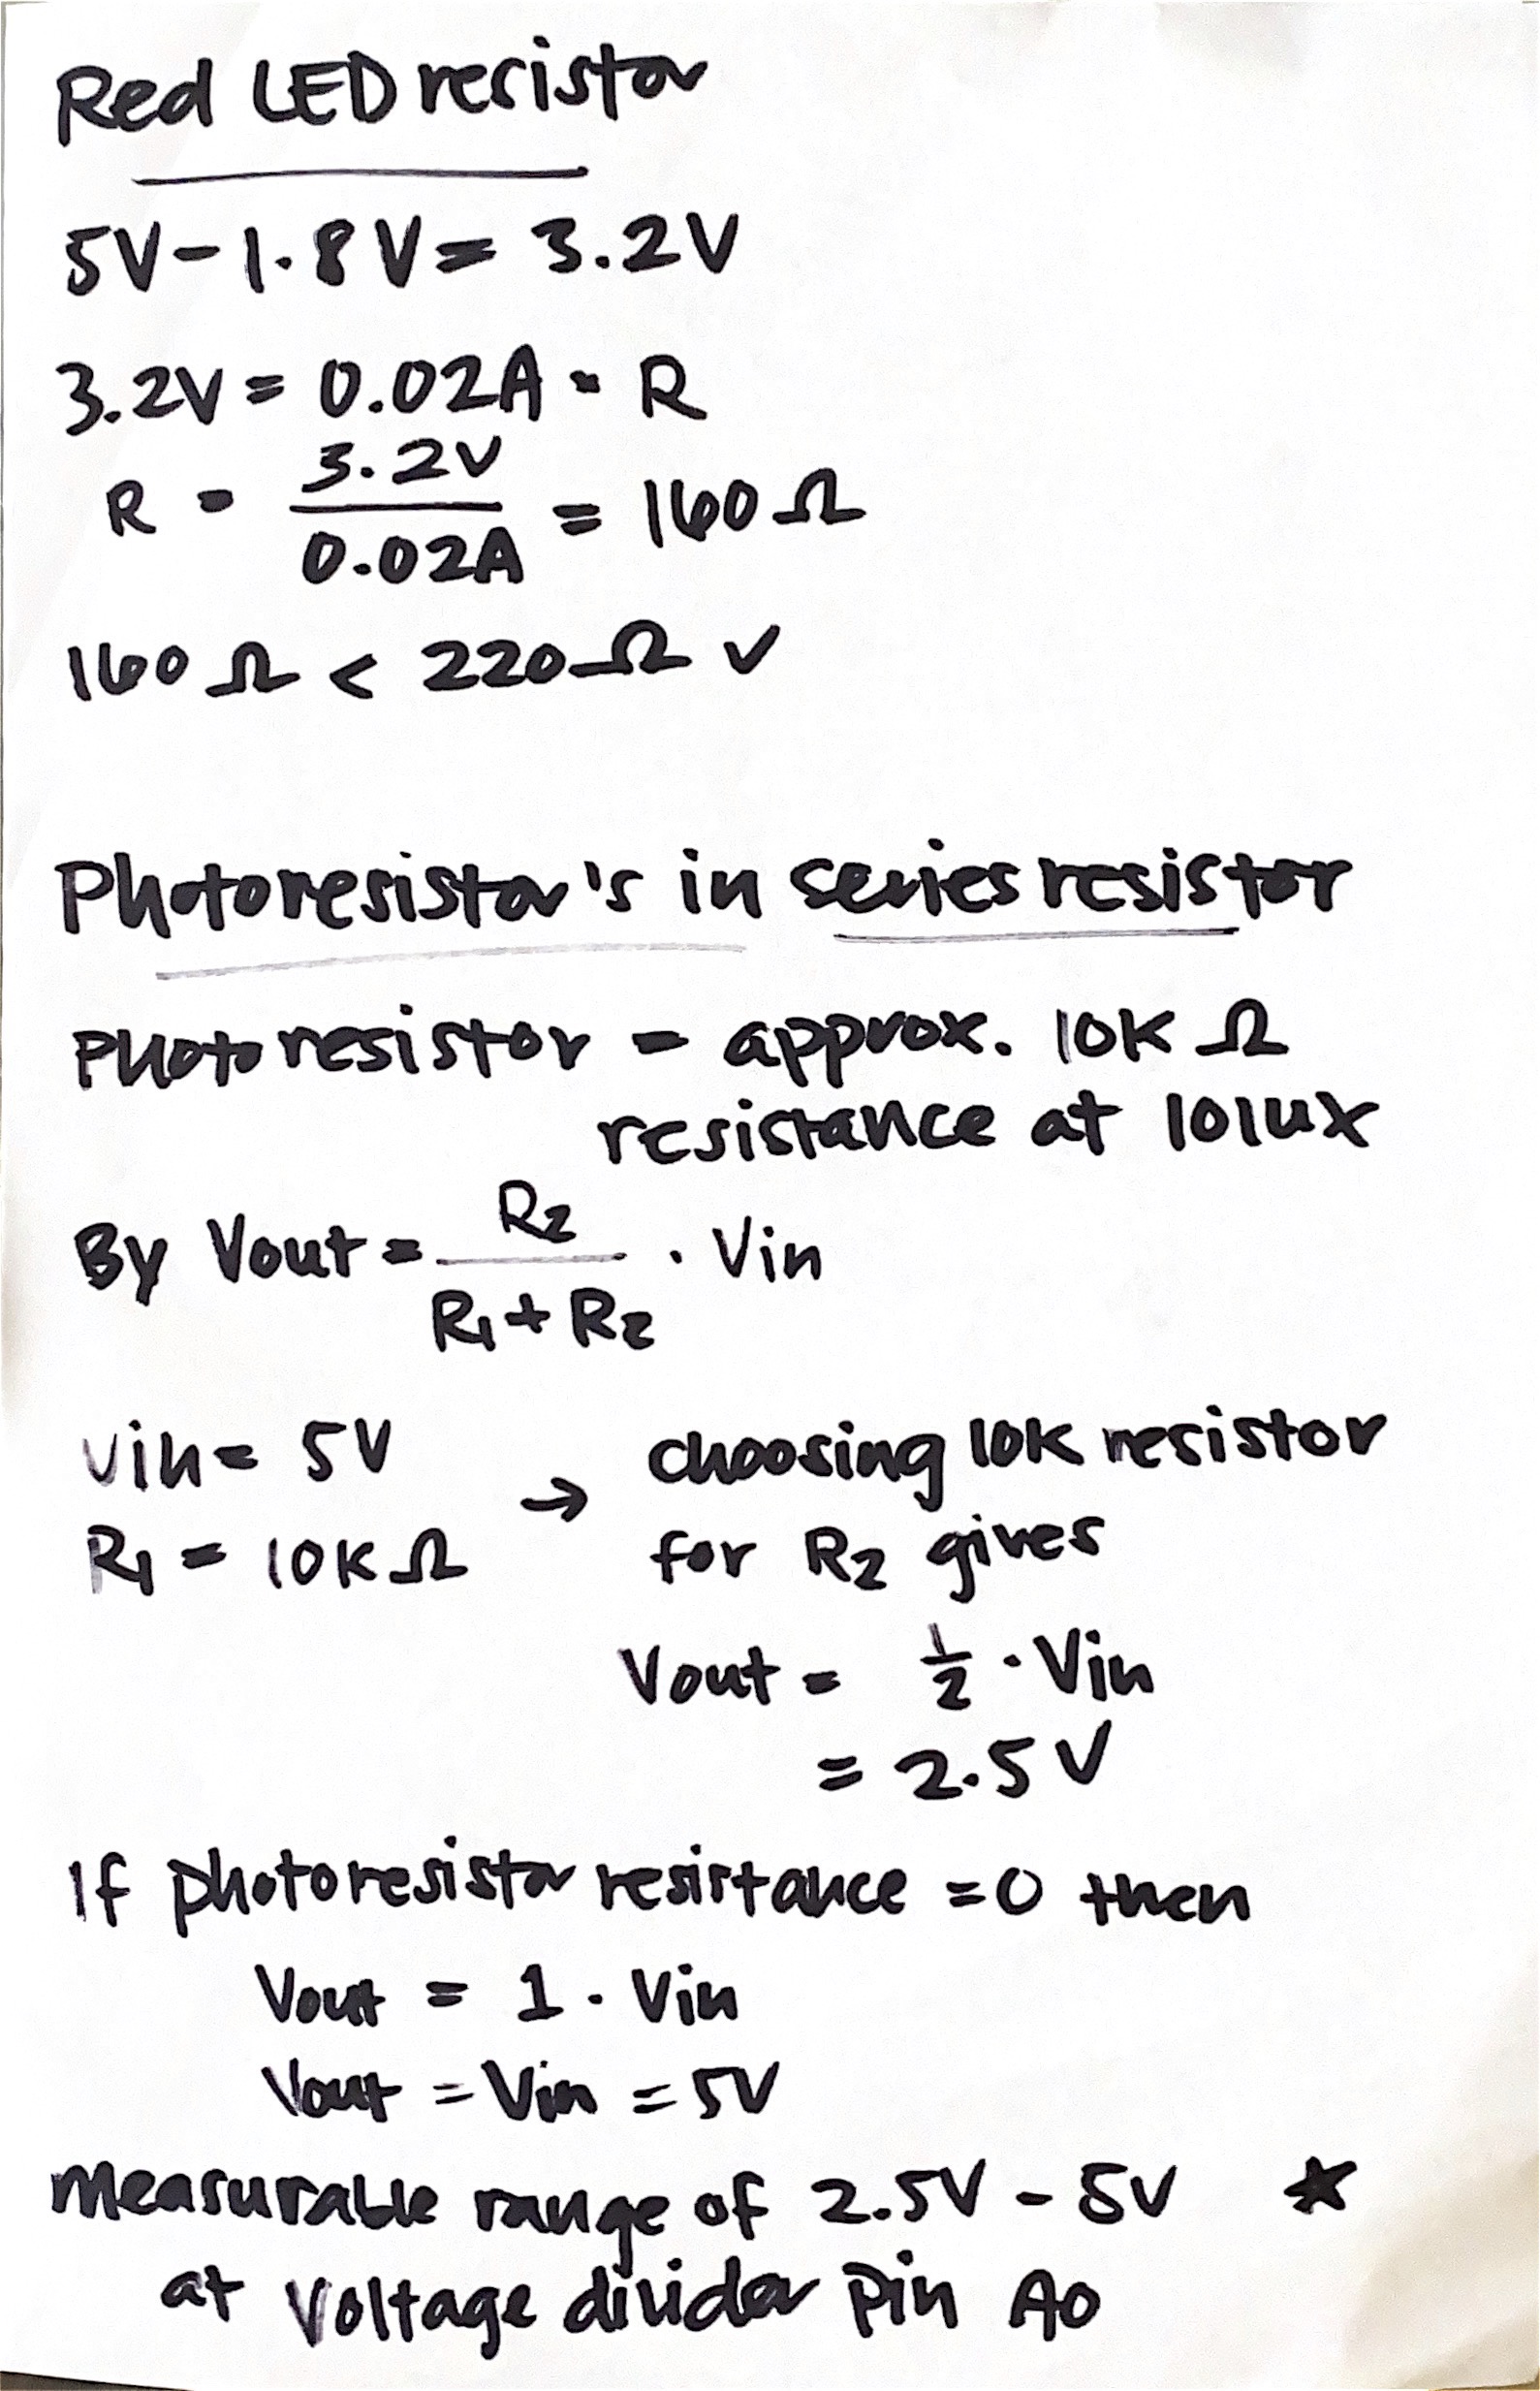 Red LED resistor
5V - 1.8V = 3.2V
3.2V = 0.02A · R
R = 3.2V / 0.02A = 160Ω
160Ω < 220Ω ✓
Photoresistor's in series resistor
Photoresistor = approx. 10K Ω
resistance at 10lux
By Vout = R2 / R1 + R2 · Vin
Vin = 5V → choosing 10K resistor
R1 = 10KΩ for R2 gives
Vout = 1/2 · Vin
= 2.5V
If photoresistor resistance = 0 then
Vout = 1 · Vin
Vout = Vin = 5V
measurable range of 2.5V - 5V *
at voltage divider pin A0